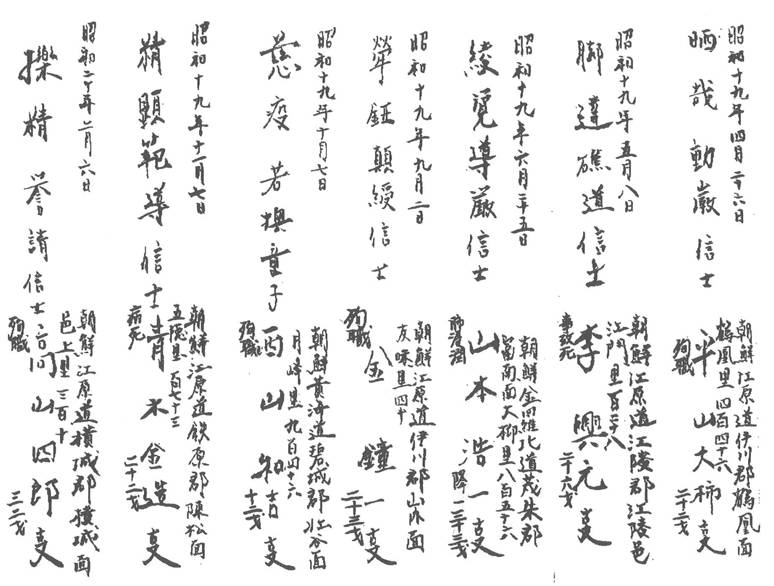 昭和十九年四月二十六日
晒哉動巌信士
朝鮮江原道伊川郡鶴凰面
鶴凰里四百四十六
殉職 平山大柿事
二十二才
昭和十九年五月八日
脚達礁道信士
朝鮮江原道江陵郡江陵邑
江門里百二十八
事故死 李興元事
二十六才
昭和十九年六月二十五日
綾覚導厳信士
朝鮮全羅北道茂朱郡
富南面大柳里八百五十六
山本浩一事
二十三才
昭和十九年九月二日
鉦顛綬信士
朝鮮江原道伊川郡山外面
灰味里四十
殉職 金鐘一事
二十三才
昭和十九年十月七日
慈疫若興童子
朝鮮黄海道碧城郡壯谷面
月峰里九百四十六
殉職 酉山和吉事
十二才
昭和十九年十一月七日
精顕範導信士
朝鮮江原道鉄原郡陳松面
五隍里百七十三
病死 青木金造事
二十二才
昭和二十年二月六日
擽精誉請信士
朝鮮江原道横城郡横城面
邑上里三百十
殉職 山四郎事
三二才